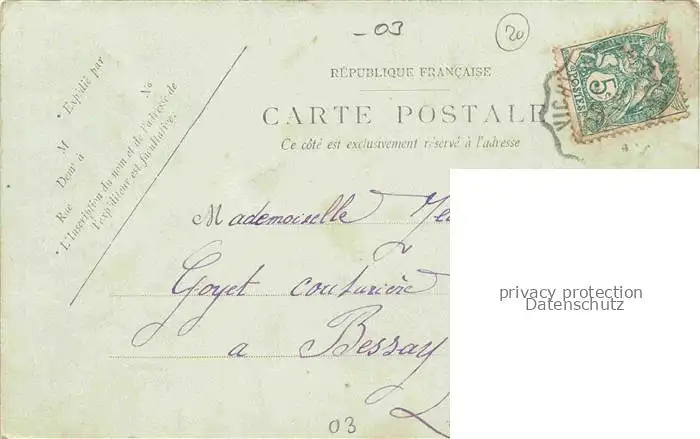 -03
20
RÉPUBLIQUE FRANÇAISE
CARTE POSTALE
Ce côté est exclusivement réservé à l'adresse
• Expédié par
M
Dem^t à
Rue
N°
• L'Inscription du nom et de l'adresse de
l'expéditeur est facultative.
5c
POSTES
VICHY
Mademoiselle
Goyet couturière
a Bessay
03
privacy protection
Datenschutz